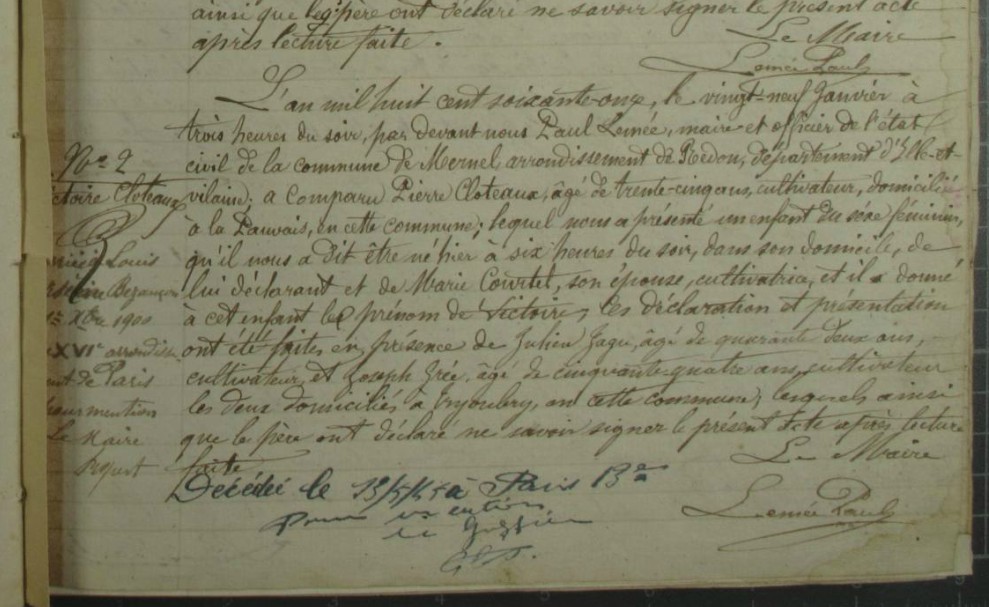 ainsi que le père ont déclaré ne savoir signer le présent acte
après lecture faite.
Le Maire
Lemée Paul
L'an mil huit cent soixante-onze, le vingt-neuf Janvier à
trois heures du soir, par devant nous Paul Lemée, maire et officier de l'état
civil de la commune de Mernel arrondissement de Redon, département d'Ille-et-
vilaine; a comparu Pierre Cloteaux, âgé de trente-cinq ans, cultivateur, domicilié
à la Pauvais, en cette commune; lequel nous a présenté un enfant du sexe féminin,
qu'il nous a dit être né hier à six heures du soir, dans son domicile, de
lui déclarant et de Marie Courtel, son épouse, cultivatrice, et il a donné
à cet enfant le prénom de Victoire, les déclaration et présentation
ont été faites en présence de Julien âgé de quarante deux ans,
cultivateur, et Joseph âgé de cinquante-quatre ans, cultivateur
les deux domiciliés à en cette commune; lesquels ainsi
que le père ont déclaré ne savoir signer le présent acte après lecture
faite
Le Maire
Lemée Paul
No 2
ctoire Cloteaux
Louis
Bezançon
Xbre 1900
XVIe arrondisse
nt de Paris
our mention
Le Maire
Décédée le à Paris 13e
Pour mention
Le Greffier